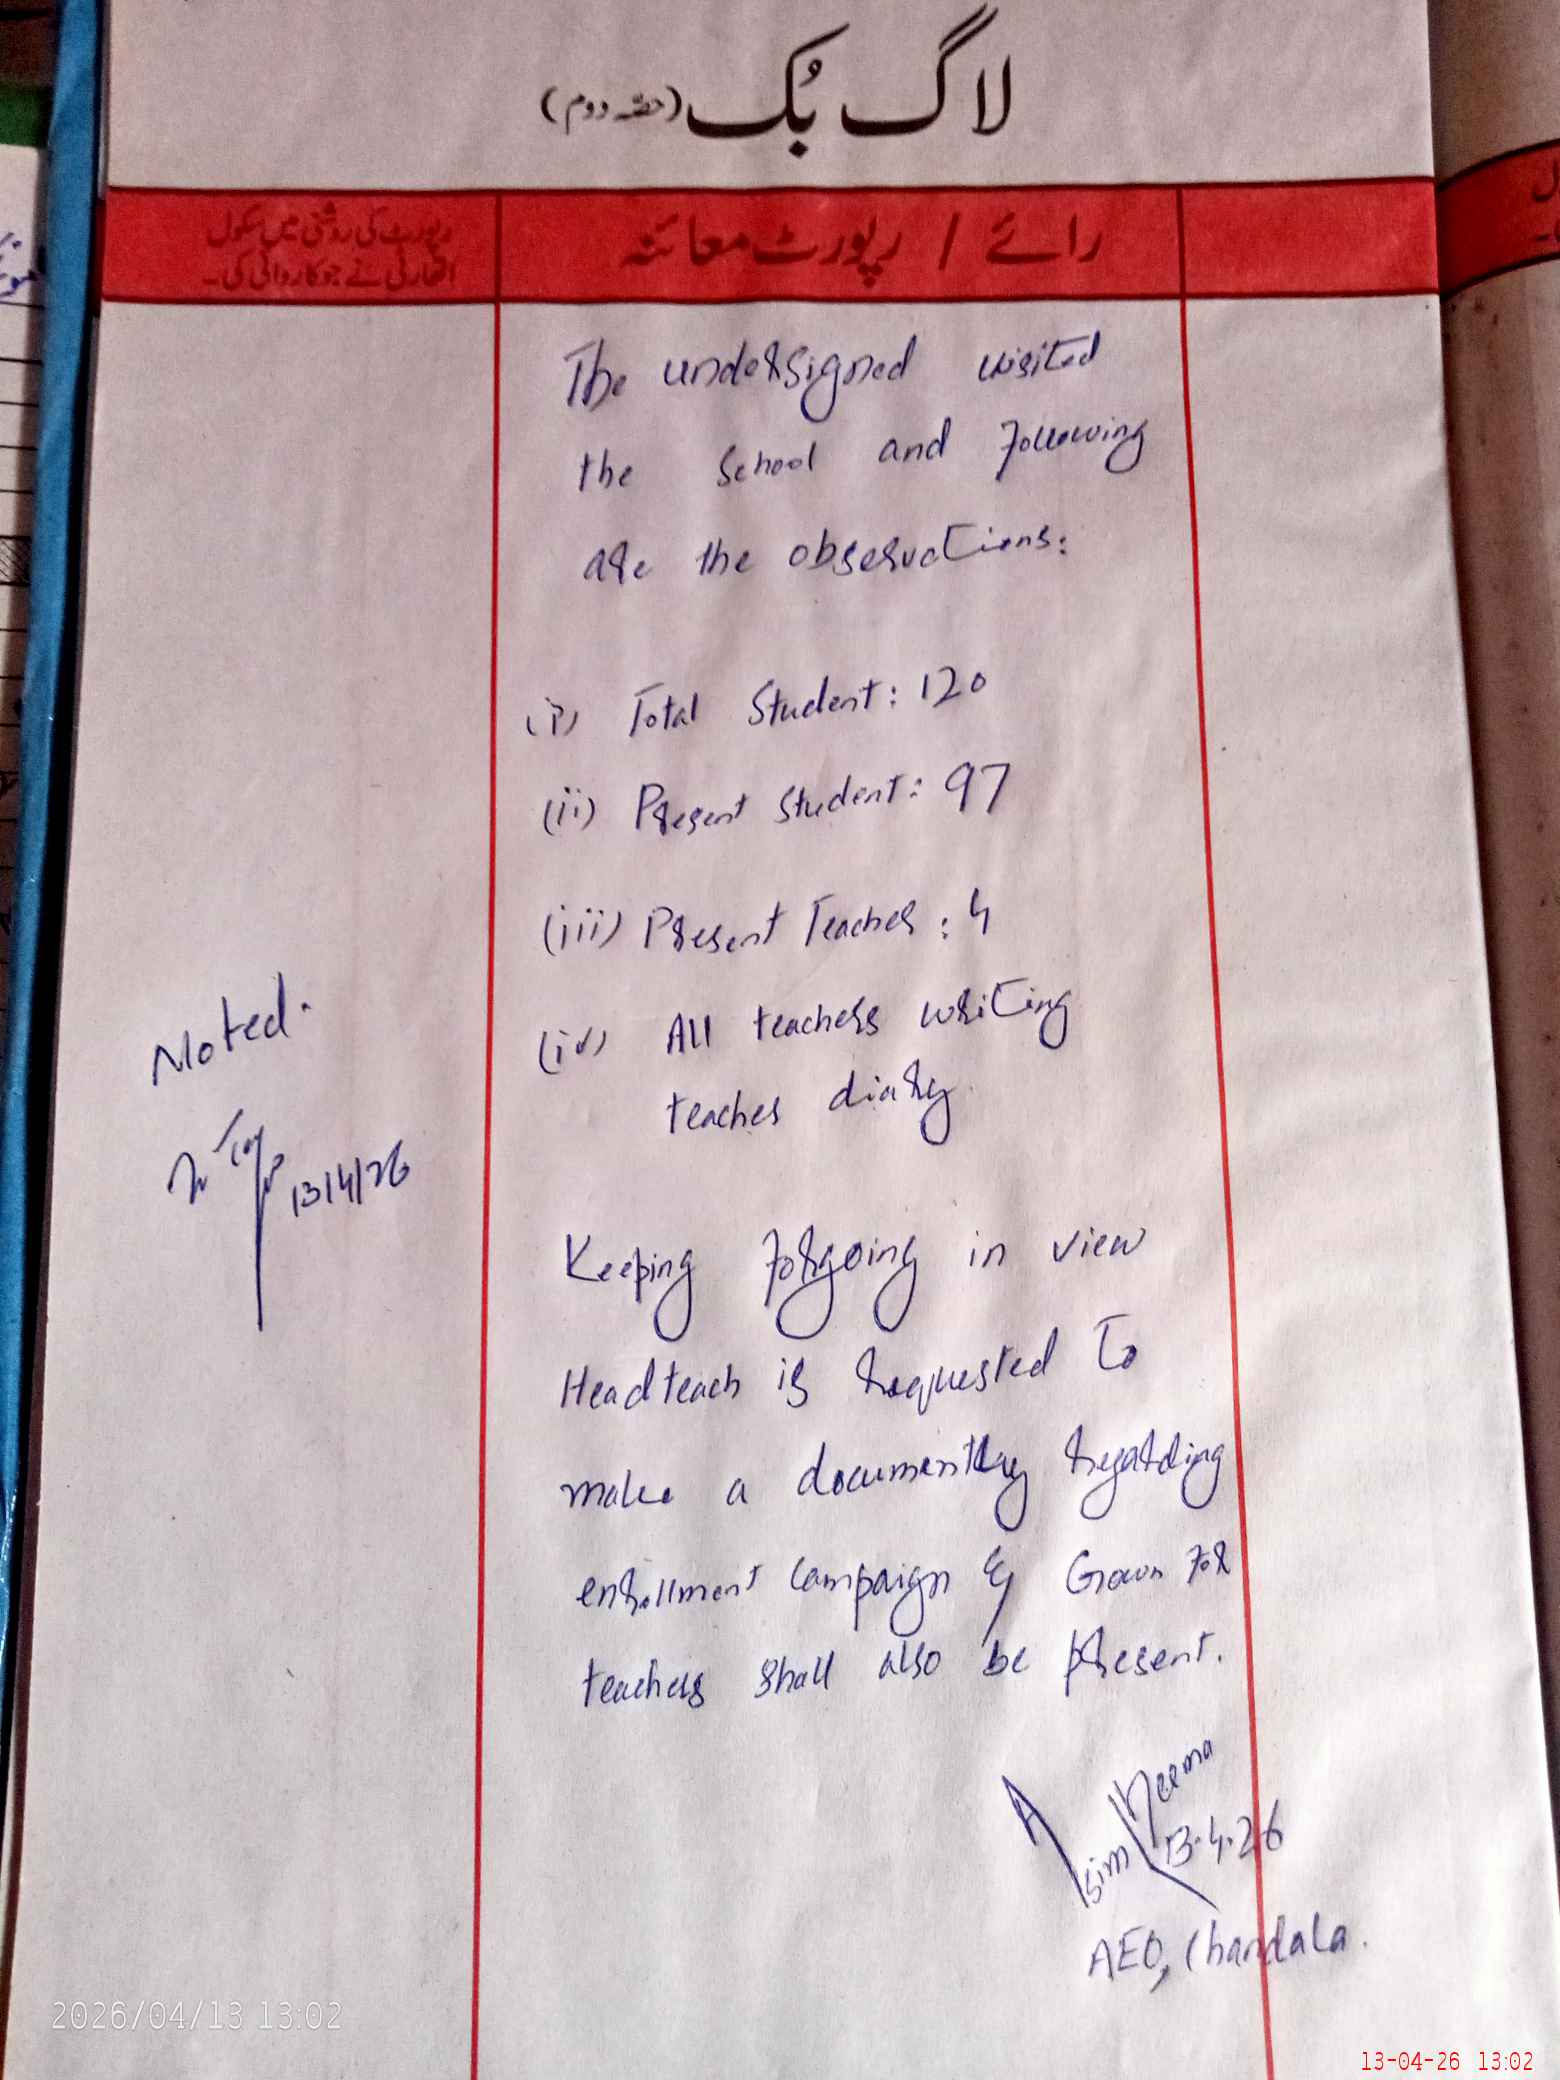 لاگ بُک (حصّہ دوم)
رائے / رپورٹ معائنہ
رپورٹ کی روشنی میں سکول
اتھارٹی نے جو کاروائی کی۔
The undersigned visited
the school and following
are the observations:
(i) Total Student: 120
(ii) Present Student: 97
(iii) Present Teacher: 4
(iv) All teachers writing
teacher diary.
Keeping forgoing in view
Headteach is requested to
make a documentry regarding
enrollment campaign & Gown for
teachers shall also be present.
Asim Cheema
13.4.26
AEO, Chandala.
Noted.
13/4/26
2026/04/13 13:02
13-04-26 13:02